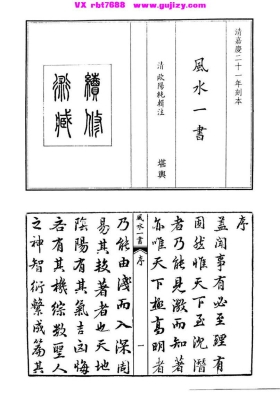 VX rbt7688 www.gujizy.com
清嘉慶二十一年刻本
風水一書
清 歐陽純輯注
堪輿
續修
術藏
序
蓋聞事有必至理有
固然惟天下至沈潛
者乃能見激而知著
亦唯天下極高明者
風水一書 序 一
乃能由淺而入深周
易其較著者也天地
陰陽有其氣吉凶悔
吝有其機綜數聖人
之神智衍繫成篇其